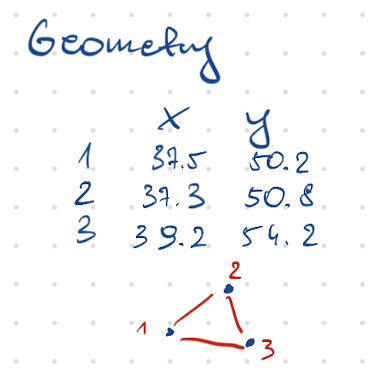 Geometry
x y
1 37.5 50.2
2 37.3 50.8
3 39.2 54.2
2
1
3